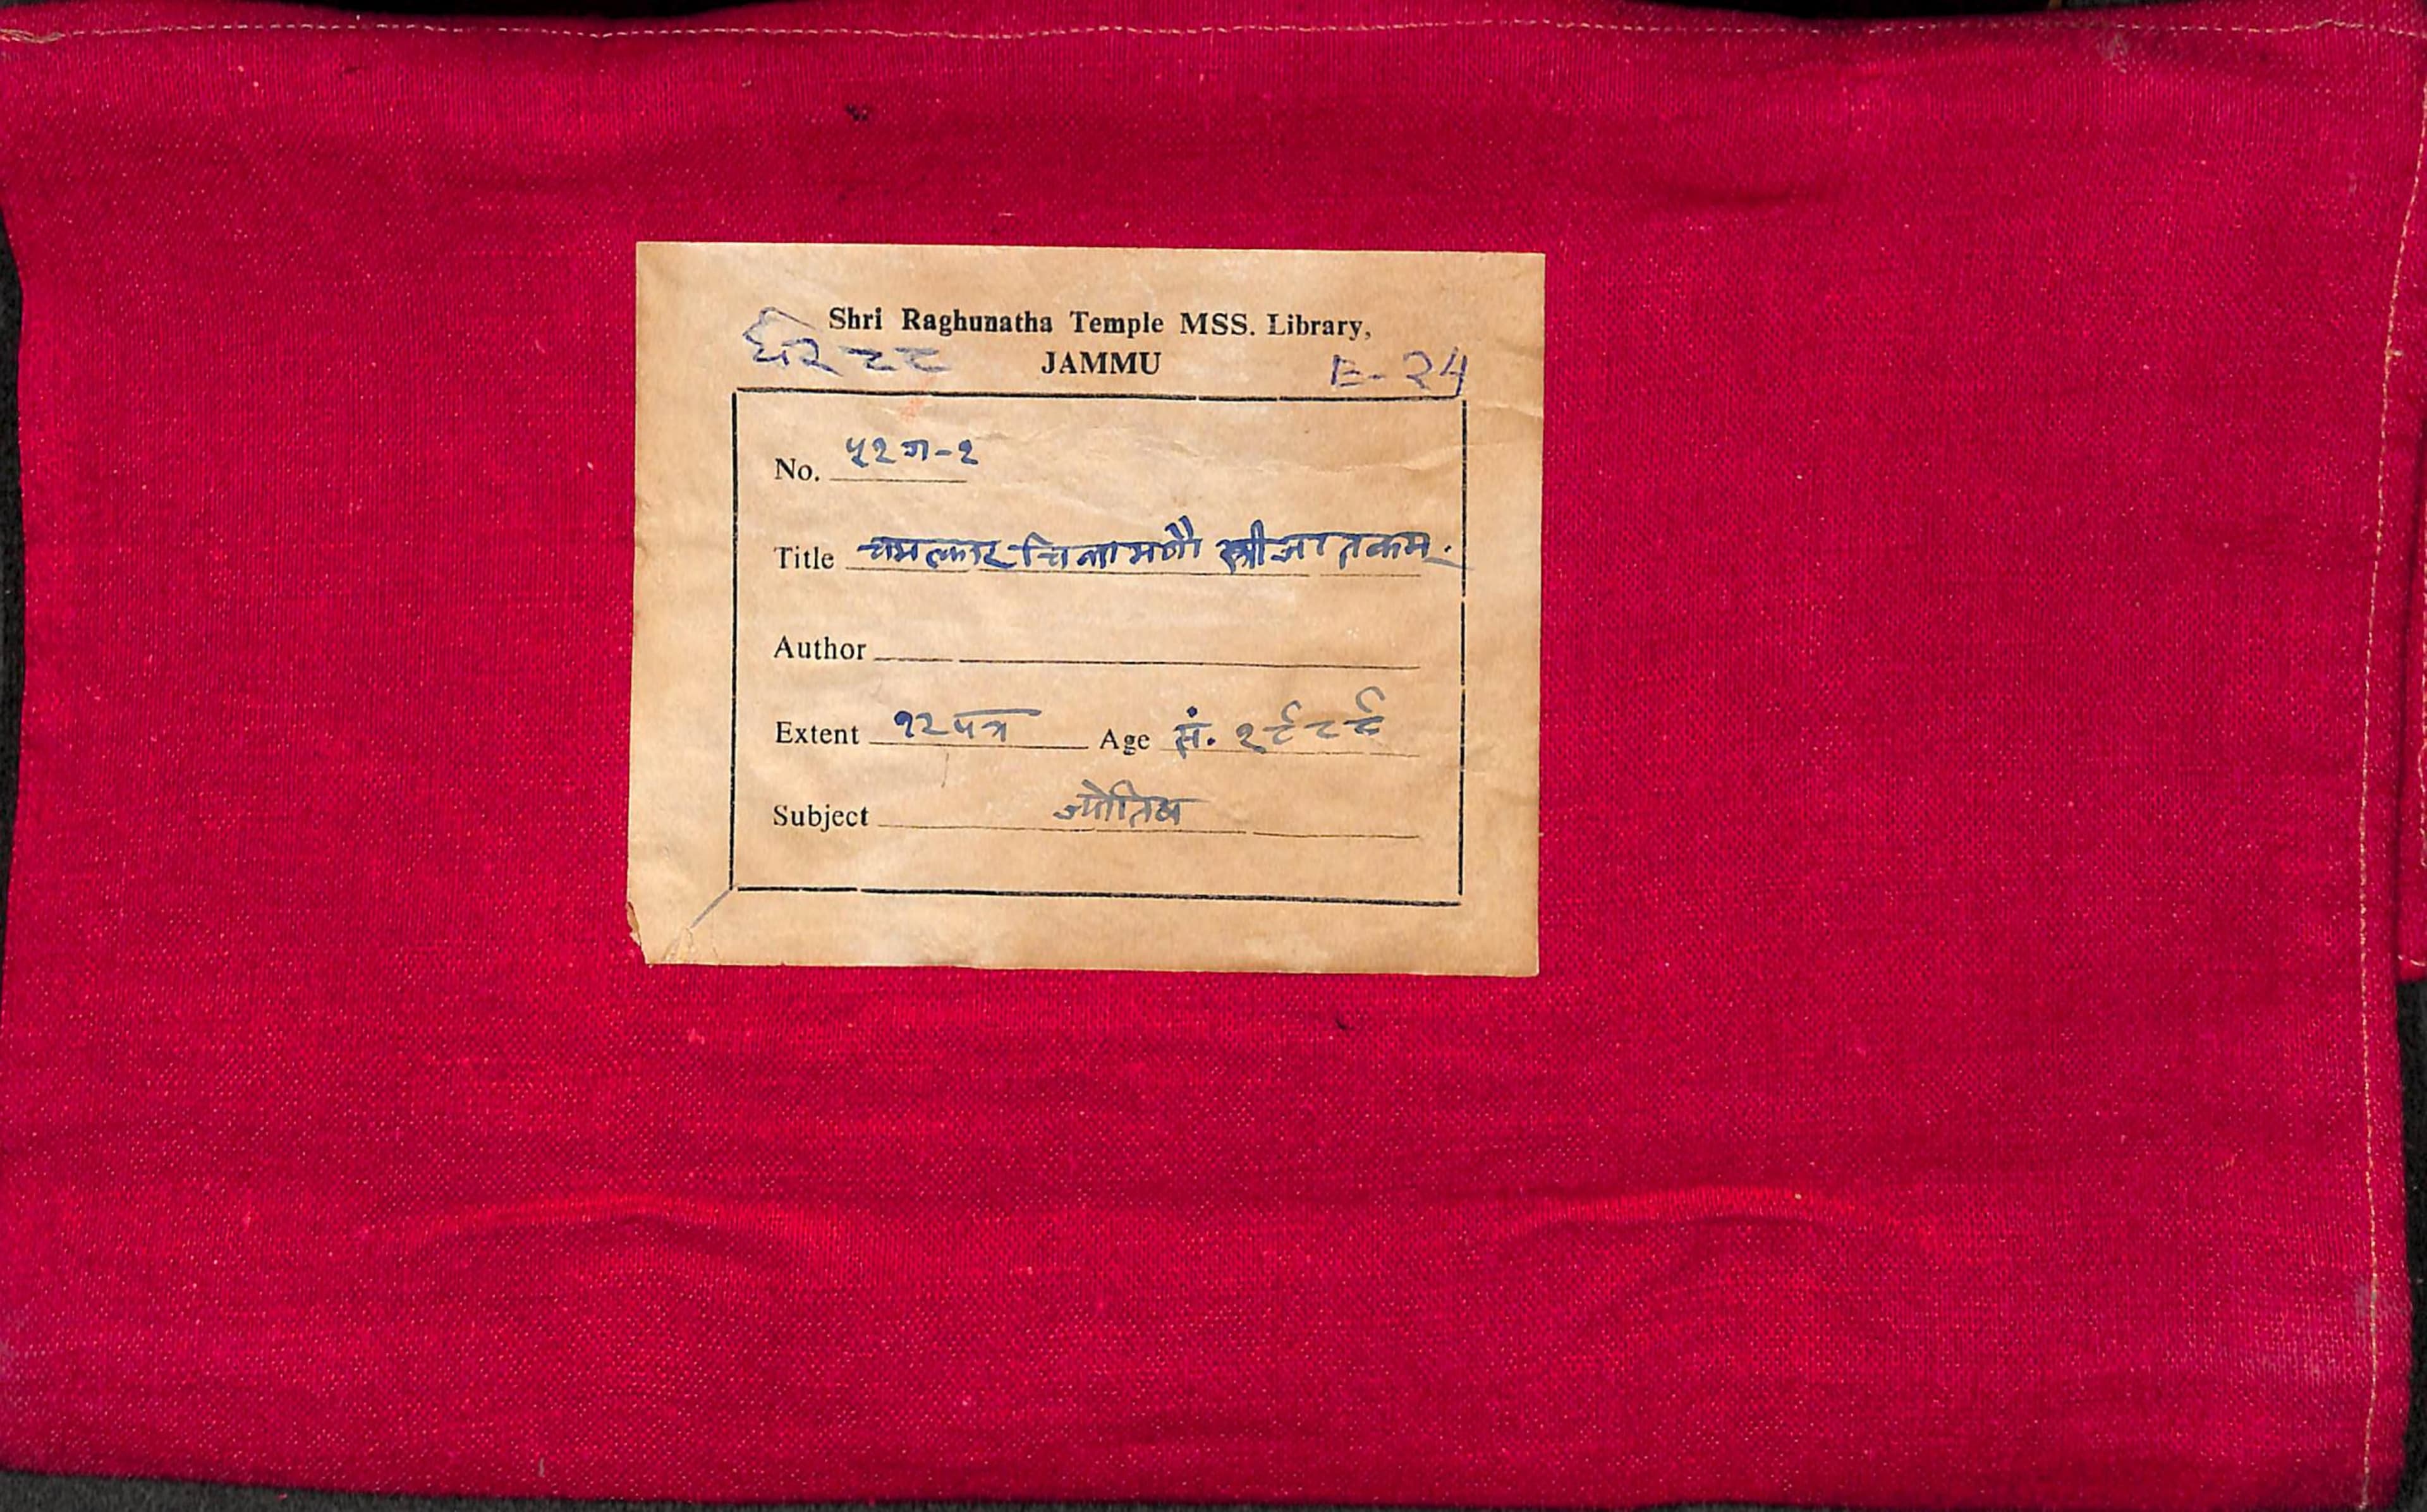 Shri Raghunatha Temple MSS. Library,
JAMMU
E-24
No. ५२ ग-१
Title चमत्कार चिन्तामणौ स्त्रीजातकम्.
Author
Extent १२ पत्र Age सं. १९८९
Subject ज्योतिष